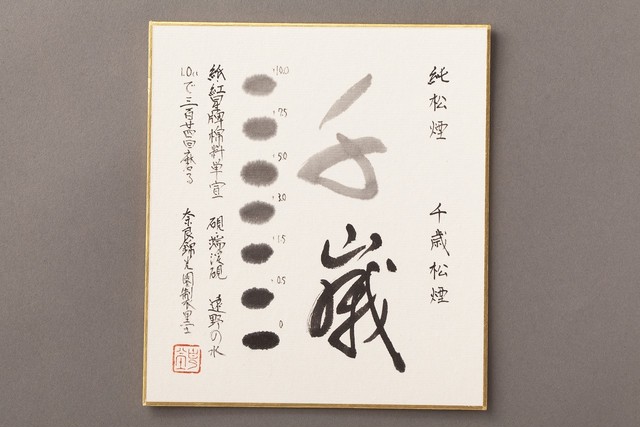 純松煙　千歳松煙
千歳
10.0
7.5
5.0
3.0
1.5
0.5
0
紙・紅星牌棉料単宣　硯・端渓硯　遠野の水
1.0ccで三百廿四回磨る　奈良錦光園製墨士